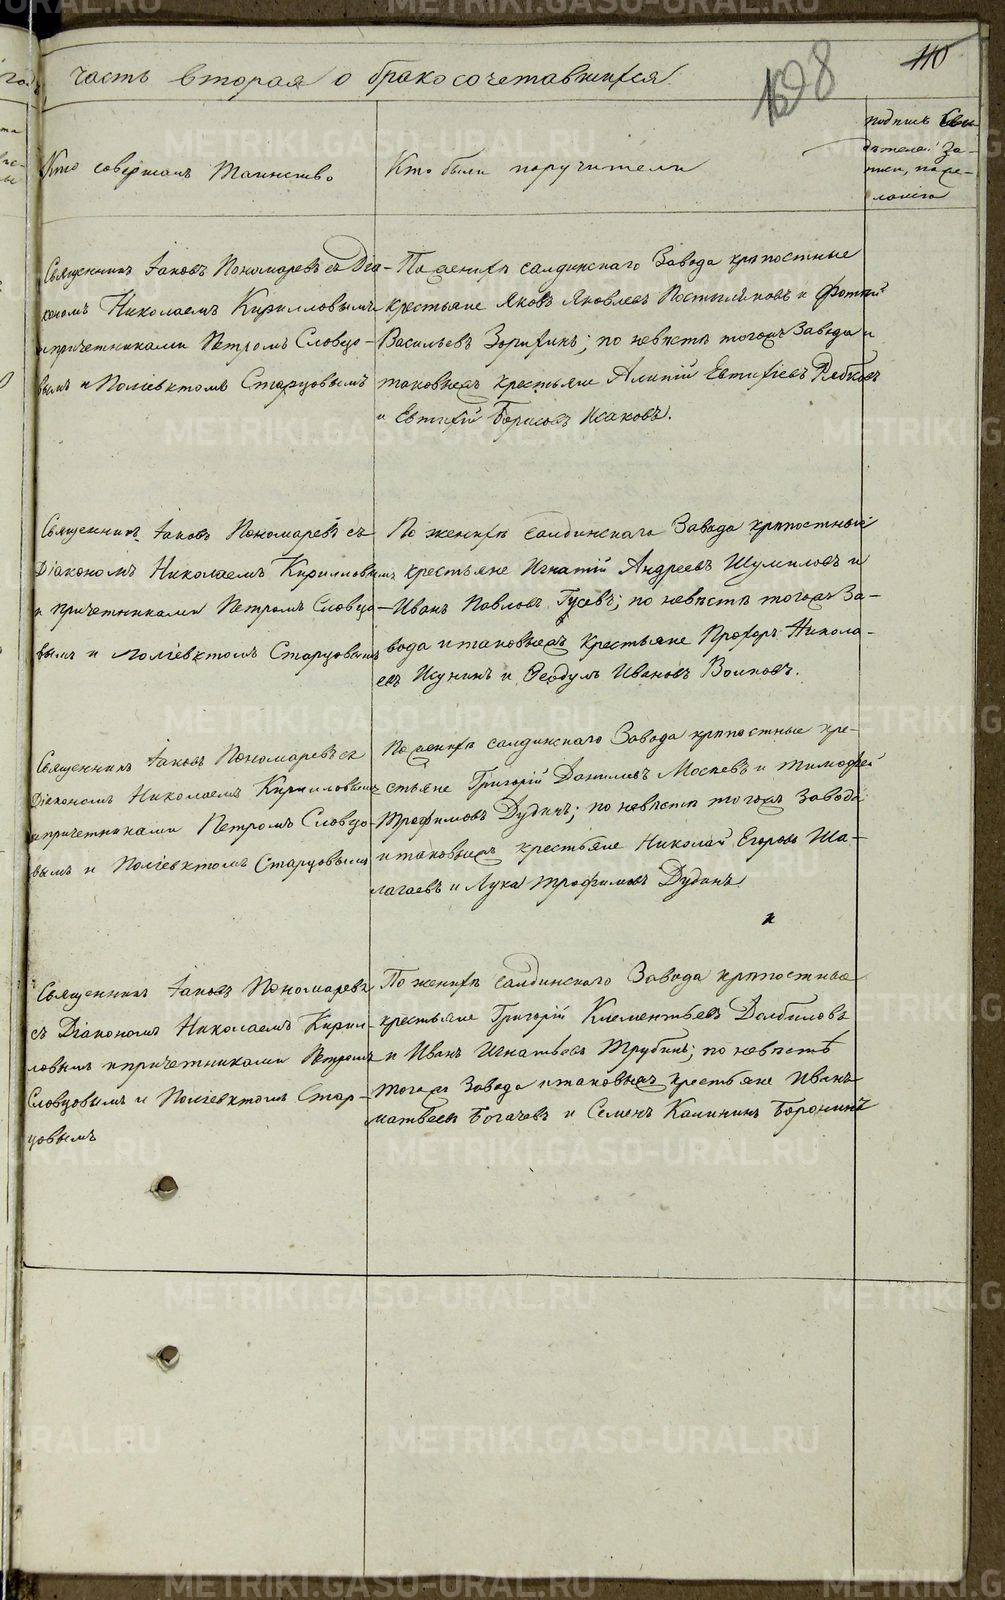 часть вторая о бракосочетавшихся
110
Кто совершалъ Таинство
Кто были поручители
подпись Сви-
дѣтелей за-
писи, по же-
ланію
Священникъ Іаковъ Пономаревъ съ Діа-
кономъ Николаемъ Кирилловымъ
и причетниками Петромъ Словцо-
вымъ и Поліевктомъ Старцовымъ
По женихѣ салдинскаго Завода крѣпостные
крестьяне Яковъ Яковлевъ Постыляковъ и Фотий
Васильевъ Зорихинъ; по невѣстѣ тогожъ Завода и
таковыежъ крестьяне Алипій Евтифіевъ Рябковъ
и Евтифій Борисовъ Исаковъ.
Священникъ Іаковъ Пономаревъ съ
Діакономъ Николаемъ Кирилловымъ
и причетниками Петромъ Словцо-
вымъ и Поліевктомъ Старцовымъ
По женихѣ салдинскаго Завода крѣпостные
крестьяне Игнатій Андреевъ Шумиловъ и
Иванъ Павловъ Гусевъ; по невѣстѣ тогожъ За-
вода и таковыежъ крестьяне Прохоръ Никола-
евъ Жунинъ и Феодулъ Ивановъ Волковъ.
Священникъ Іаковъ Пономаревъ съ
Діакономъ Николаемъ Кирилловымъ
и причетниками Петромъ Словцо-
вымъ и Поліевктомъ Старцовымъ
По женихѣ салдинскаго Завода крѣпостные кре-
стьяне Григорій Даниловъ Москвъ и тимофей
Трофимовъ Дудинъ; по невѣстѣ тогожъ Завода
и таковыежъ крестьяне Николай Егоровъ Ша-
лагаевъ и Лука Трофимовъ Дудинъ
Священникъ Іаковъ Пономаревъ
съ Діакономъ Николаемъ Кирил-
ловымъ и причетниками Петромъ
Словцовымъ и Поліевктомъ Стар-
цовымъ
По женихѣ салдинскаго Завода крѣпостные
крестьяне Григорій Клементьевъ Долбиловъ
и Иванъ Игнатьевъ Трубинъ; по невѣстѣ
тогожъ Завода и таковыежъ крестьяне Иванъ
Матвеевъ Богачевъ и Семенъ Калининъ Боронинъ
METRIKI.GASO-URAL.RU